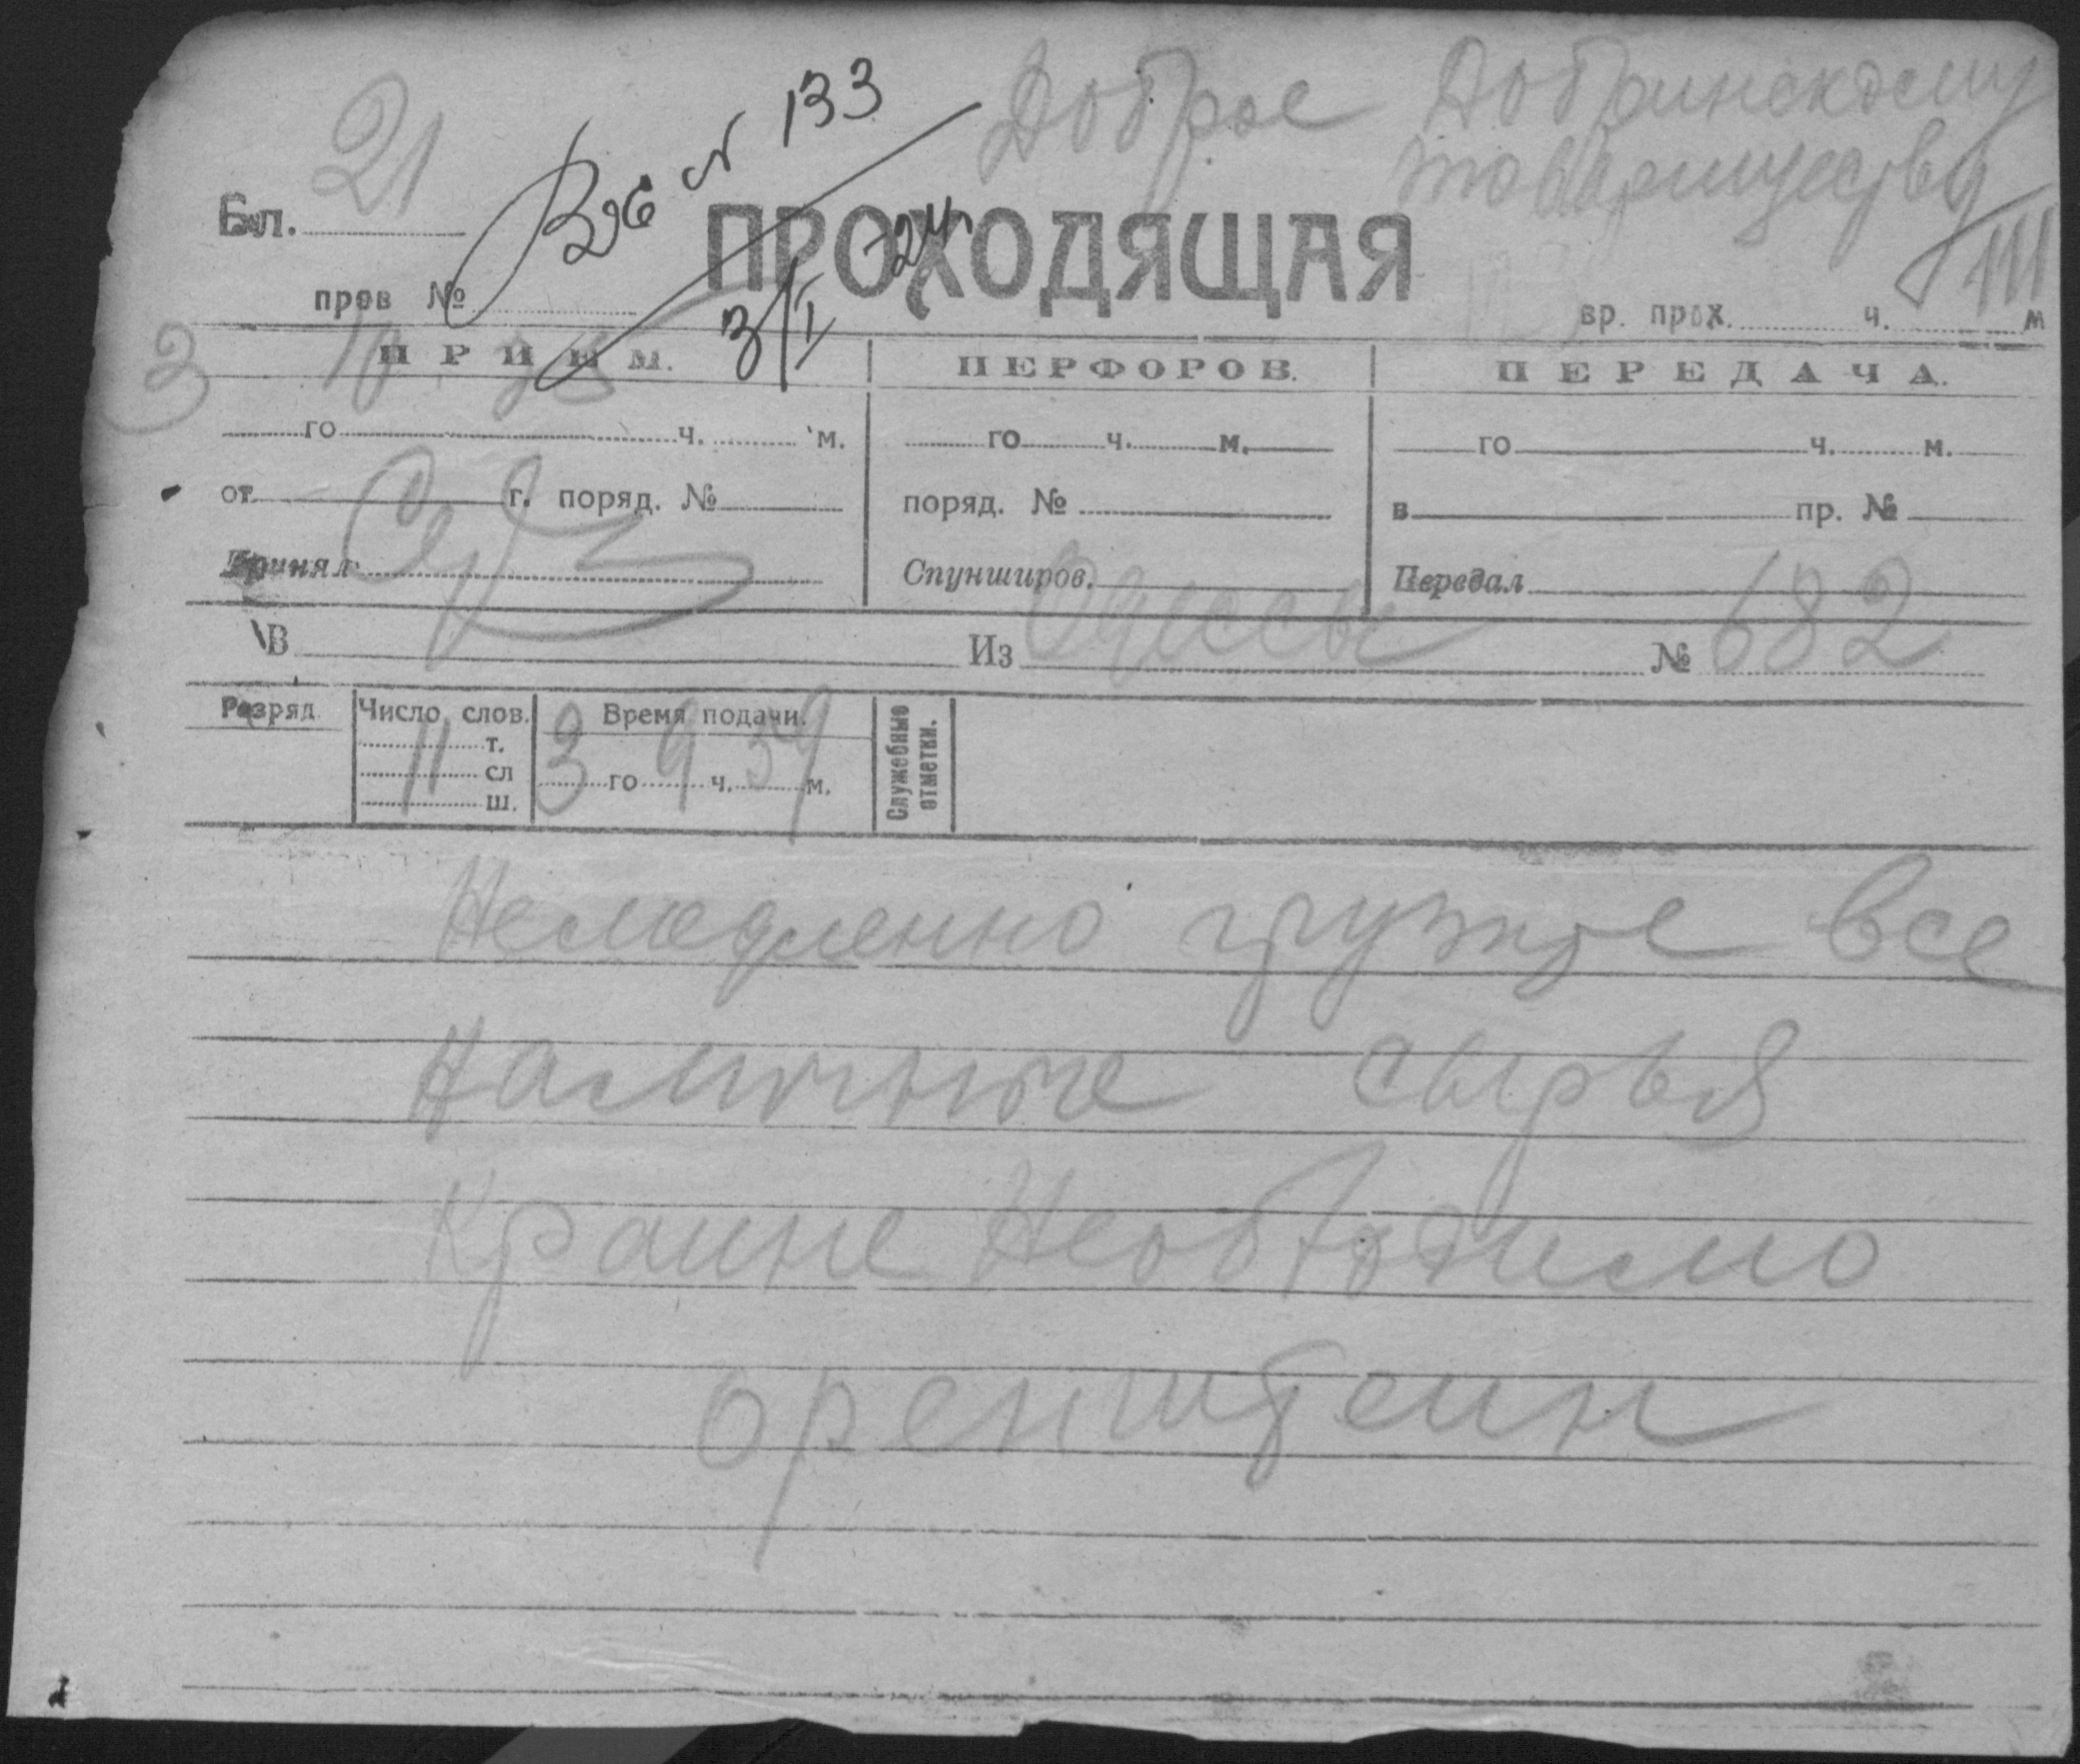 Доброе Добринскому
товариществу
Бл. 21
Вх № 133
3/I -24
ПРОХОДЯЩАЯ
пров №
вр. прох. ч. м
ПРИЕМ.
ПЕРФОРОВ.
ПЕРЕДАЧА.
3 10 35
го ч. м.
го ч. м.
го ч. м.
от г. поряд. №
поряд. №
в пр. №
Принял
Спунширов.
Передал
В Из Одессы № 682
Разряд
Число слов.
Время подачи.
Служебные отметки.
11 т.
сл
ш.
3 го 9 ч. 59 м.
Немедленно грузите все
наличные сырья
Краине Необходимо
оренштеин